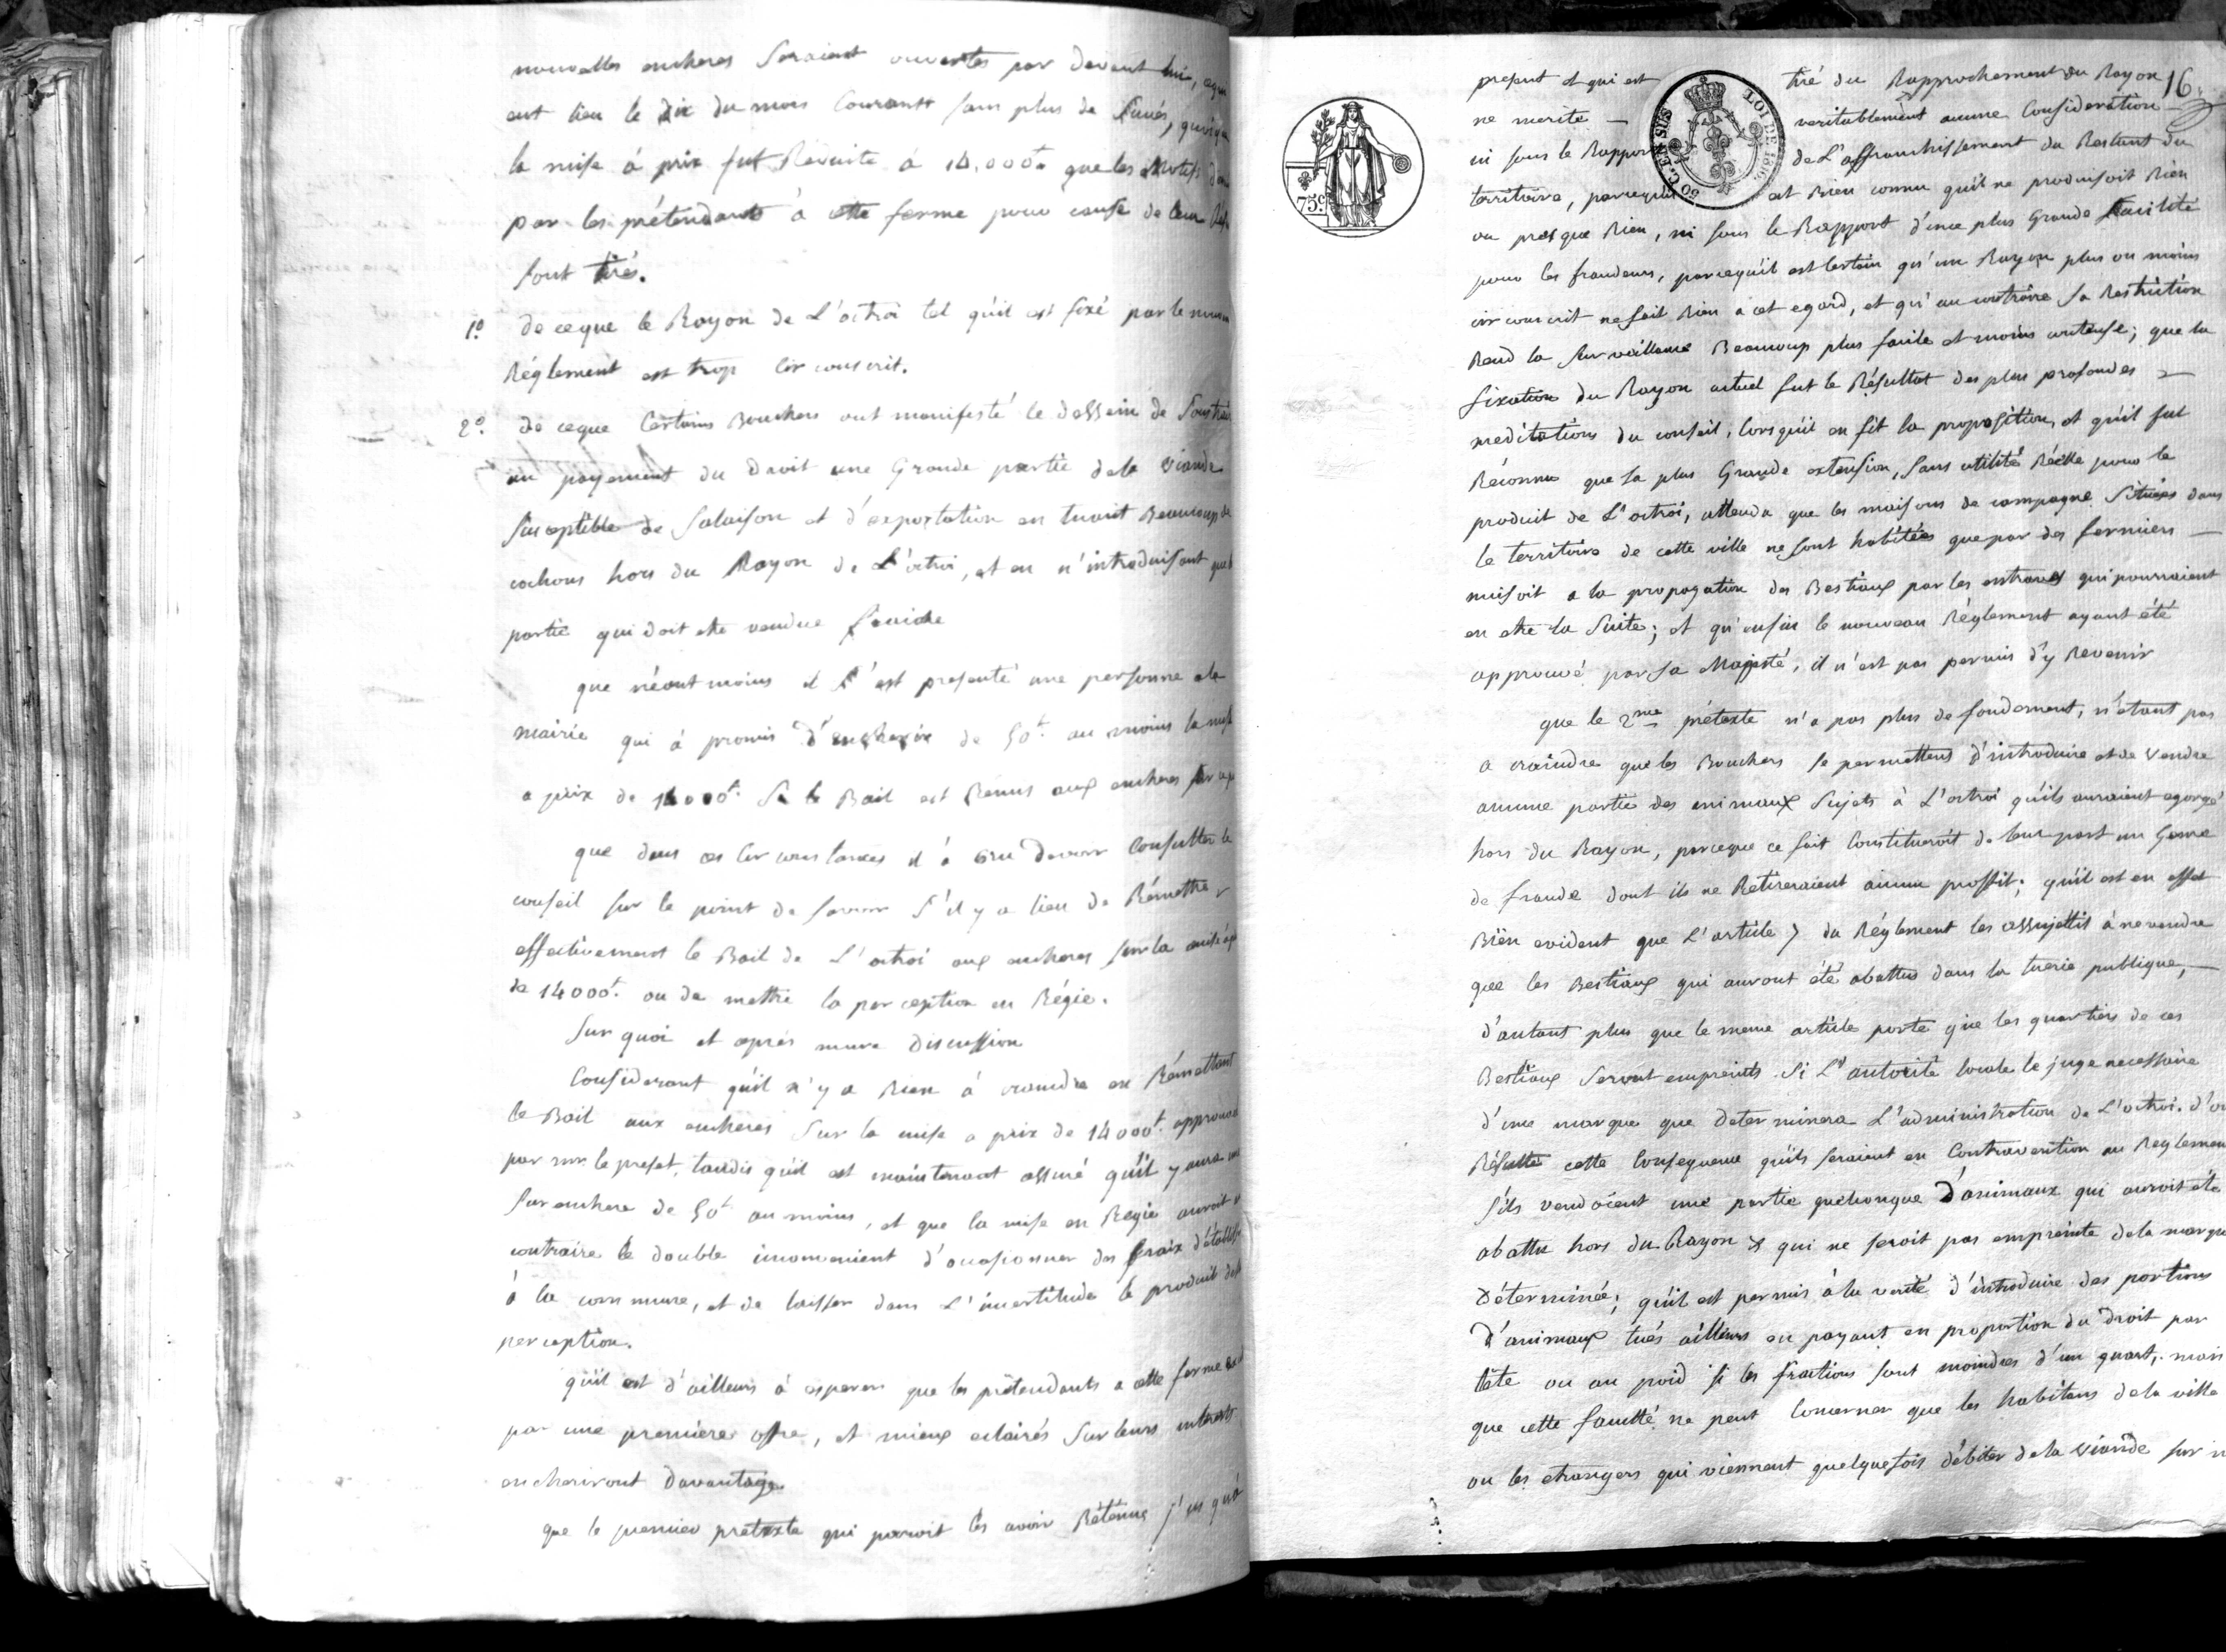 nouvelles encheres seraient ouvertes par devant lui,
eut lieu le dix du mois Courant sans plus de Succés,
la mise à prix fut Réduite à 14,000f. que les Motifs
par les prétendants à cette ferme pour cause de leur
sont tirés.
1º. de ceque le Rayon de L'octroi tel qu'il est fixé par le nouveau
Réglement est trop Circonscrit.
2º. de ceque Certains Bouchers ont manifesté le dessein de Soustraire
au payement du Droit une Grande partie dela viande
susceptible de Salaison et d'exportation en tuant Beaucoup de
cochons hors du Rayon de L'octroi, et en n'introduisant que la
partie qui doit etre vendue fraiche
que néantmoins il s'est presenté une personne ala
mairie qui à promis d'encherir de 50f. au moins la mise
a prix de 14000f. Si le Bail est Remis aux encheres
que dans ces Circonstances il à cru devoir Consulter le
conseil sur le point de savoir s'il y a lieu de Rémettre
effectivement le Bail de L'octroi aux encheres sur la mise à prix
de 14000f. ou de mettre la perception en Régie.
Sur quoi et après mure Discussion
Considerant qu'il n'y a Rien à craindre en Rémettant
le Bail aux encheres Sur la mise a prix de 14000f. approuvée
par mr. le prefet, tandis qu'il est maintenant assuré qu'il y aura une
Surenchere de 50f. au moins, et que la mise en Regie auroit au
contraire le double inconvenient d'occasionner des fraix
à la commune, et de laisser dans L'incertitude le produit de la
perception.
qu'il est d'ailleurs à esperer que les prétendants a cette ferme
par une premiere offre, et mieux eclairés Sur leurs interets
encheriront davantage.
que le premier pretexte qui paroit les avoir Rétenus jusqu'à
present et qui est tiré du Rapprochement du Rayon 16.
ne merite — veritablement aucune Consideration
ni sous le Rapport de L'affranchissement du Restant du
territoire, parcequ'il est Bien connu qu'il ne produisoit Rien
ou presque Rien, ni sous le Rapport d'une plus Grande facilité
pour les fraudeurs, parcequ'il est Certain qu'un Rayon plus ou moins
circonscrit ne fait Rien a cet egard, et qu'au contraire sa Restriction
Rend la Surveillance Beaucoup plus facile et moins couteuse; que la
fixation du Rayon actuel fut le Résultat des plus profondes
meditations du conseil, lorsqu'il en fit la proposition, et qu'il fut
Réconnu que sa plus Grande extension, Sans utilité Réelle pour le
produit de L'octroi, attendu que les maisons de campagne Situées dans
le territoire de cette ville ne sont habitées que par des fermiers —
nuisoit a la propagation des Bestiaux par les entraves qui pourraient
en etre la Suite; et qu'enfin le nouveau Réglement ayant été
approuvé par Sa Majesté, il n'est pas permis d'y Revenir
que le 2me. prétexte n'a pas plus de fondement, n'etant pas
a craindre que les Bouchers se permettent d'introduire et de Vendre
aucune partie des animaux Sujets à L'octroi qu'ils auraient egorgé
hors du Rayon, parceque ce fait Constitueroit de leur part un Genre
de fraude dont ils ne Retireraient aucun proffit; qu'il est en effet
Bien evident que L'article 7 du Réglement les assujettit à ne vendre
que les Bestiaux qui auront été abattus dans la tuerie publique, —
d'autant plus que le meme article porte que les quartiers de ces
Bestiaux Seront empreints Si L'autorité locale le juge necessaire
d'une marque que determinera L'administration de L'octroi. d'où
Résulte cette Consequence qu'ils seraient en Contravention au Reglement
s'ils vendoient une partie quelconque d'animaux qui auroit été
abattu hors du Rayon & qui ne seroit pas empreinte dela marque
Déterminée; qu'il est permis à la verité d'introduire des portions
d'animaux tués ailleurs en payant en proportion du droit par
tête ou au poid si les fractions sont moindres d'un quart, mais
que cette faculté ne peut Concerner que les habitans dela ville
ou les etrangers qui viennent quelquefois débiter dela viande sur
75.c
50 C. EN SUS
LOI DE 1816.